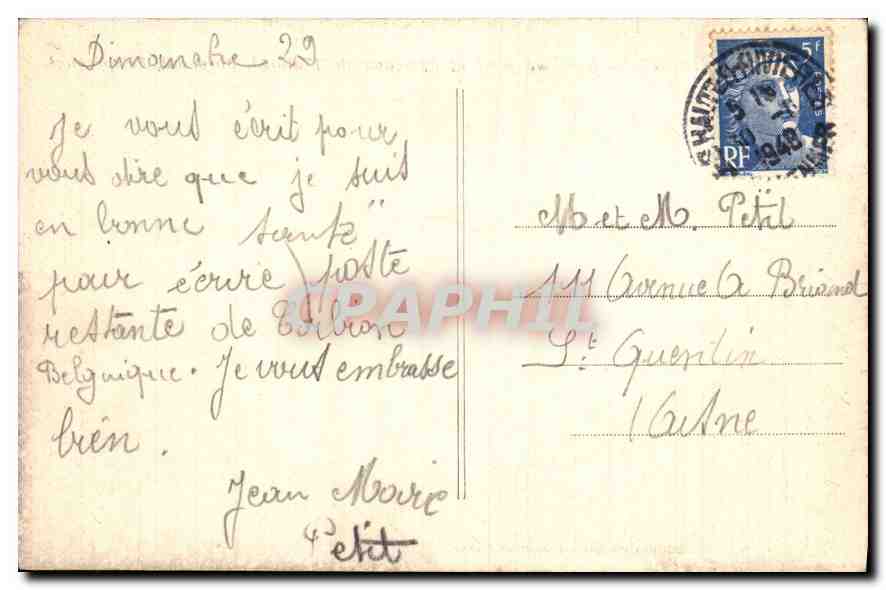 Dimanche 29
Je vous écrit pour
vous dire que je suis
en bonne santé
pour écrire poste
restante de
Belguique. Je vous embrasse
bien.
Jean Marie
Petit
5F
RF
1948
M et M. Petit
111 Avenue A Briand
St Quentin
Aisne
CPAPHIL